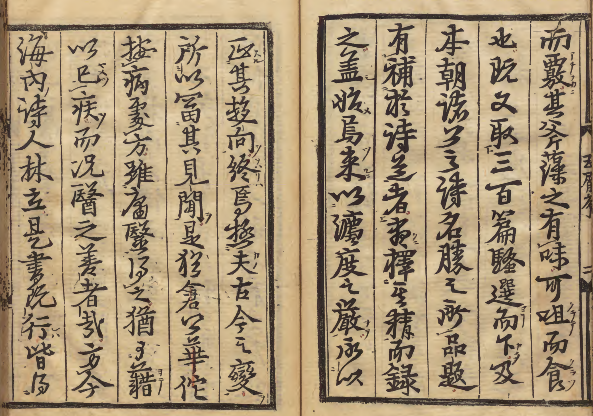 而覈其斧藻之有味可咀而食
也既又取三百篇騷選而下及
本朝諸公之詩名勝之所品題
有補於詩道者書擇其精而錄
之盖昉焉來以讜度之嚴承以
正其趍向終焉極夫古今之變
所以冨其見聞是猶倉公華佗
按病處方雖庸醫得之猶可藉
以已疾而况醫之善者哉方今
海內詩人林立是書既行皆得